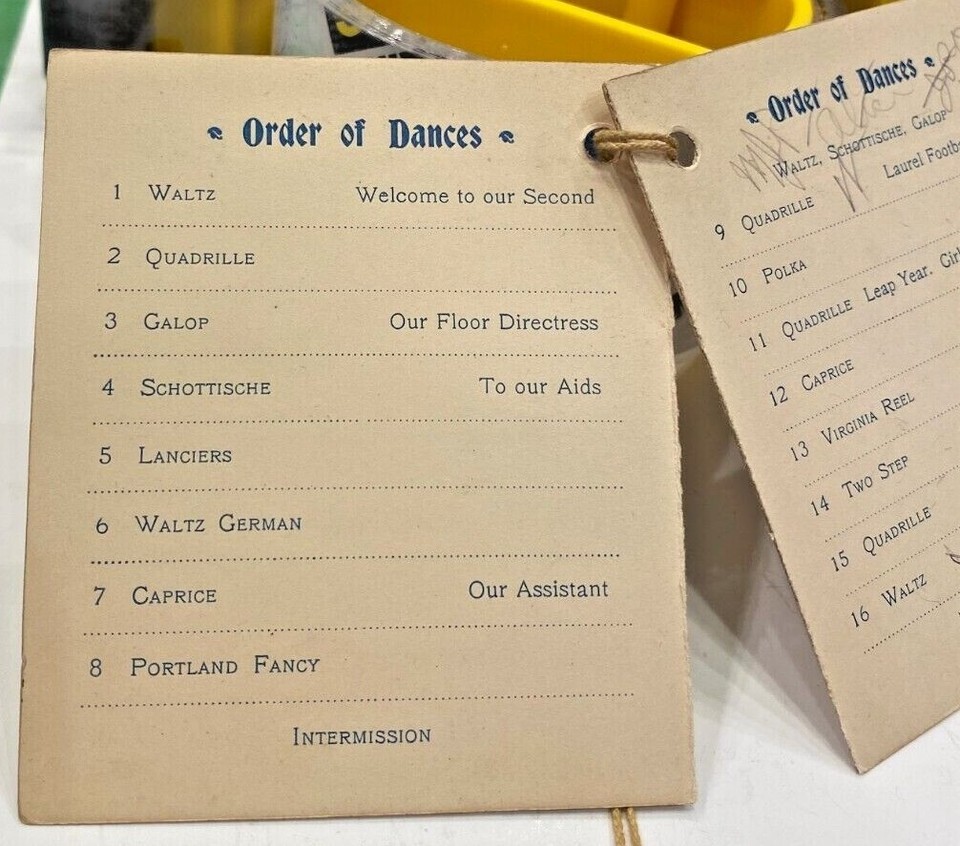 Order of Dances
1 WALTZ Welcome to our Second
2 QUADRILLE
3 GALOP Our Floor Directress
4 SCHOTTISCHE To our Aids
5 LANCIERS
6 WALTZ GERMAN
7 CAPRICE Our Assistant
8 PORTLAND FANCY
INTERMISSION
Order of Dances
WALTZ, SCHOTTISCHE, GALOP
Laurel
9 QUADRILLE
10 POLKA
11 QUADRILLE Leap Year.
12 CAPRICE
13 VIRGINIA REEL
14 TWO STEP
15 QUADRILLE
16 WALTZ